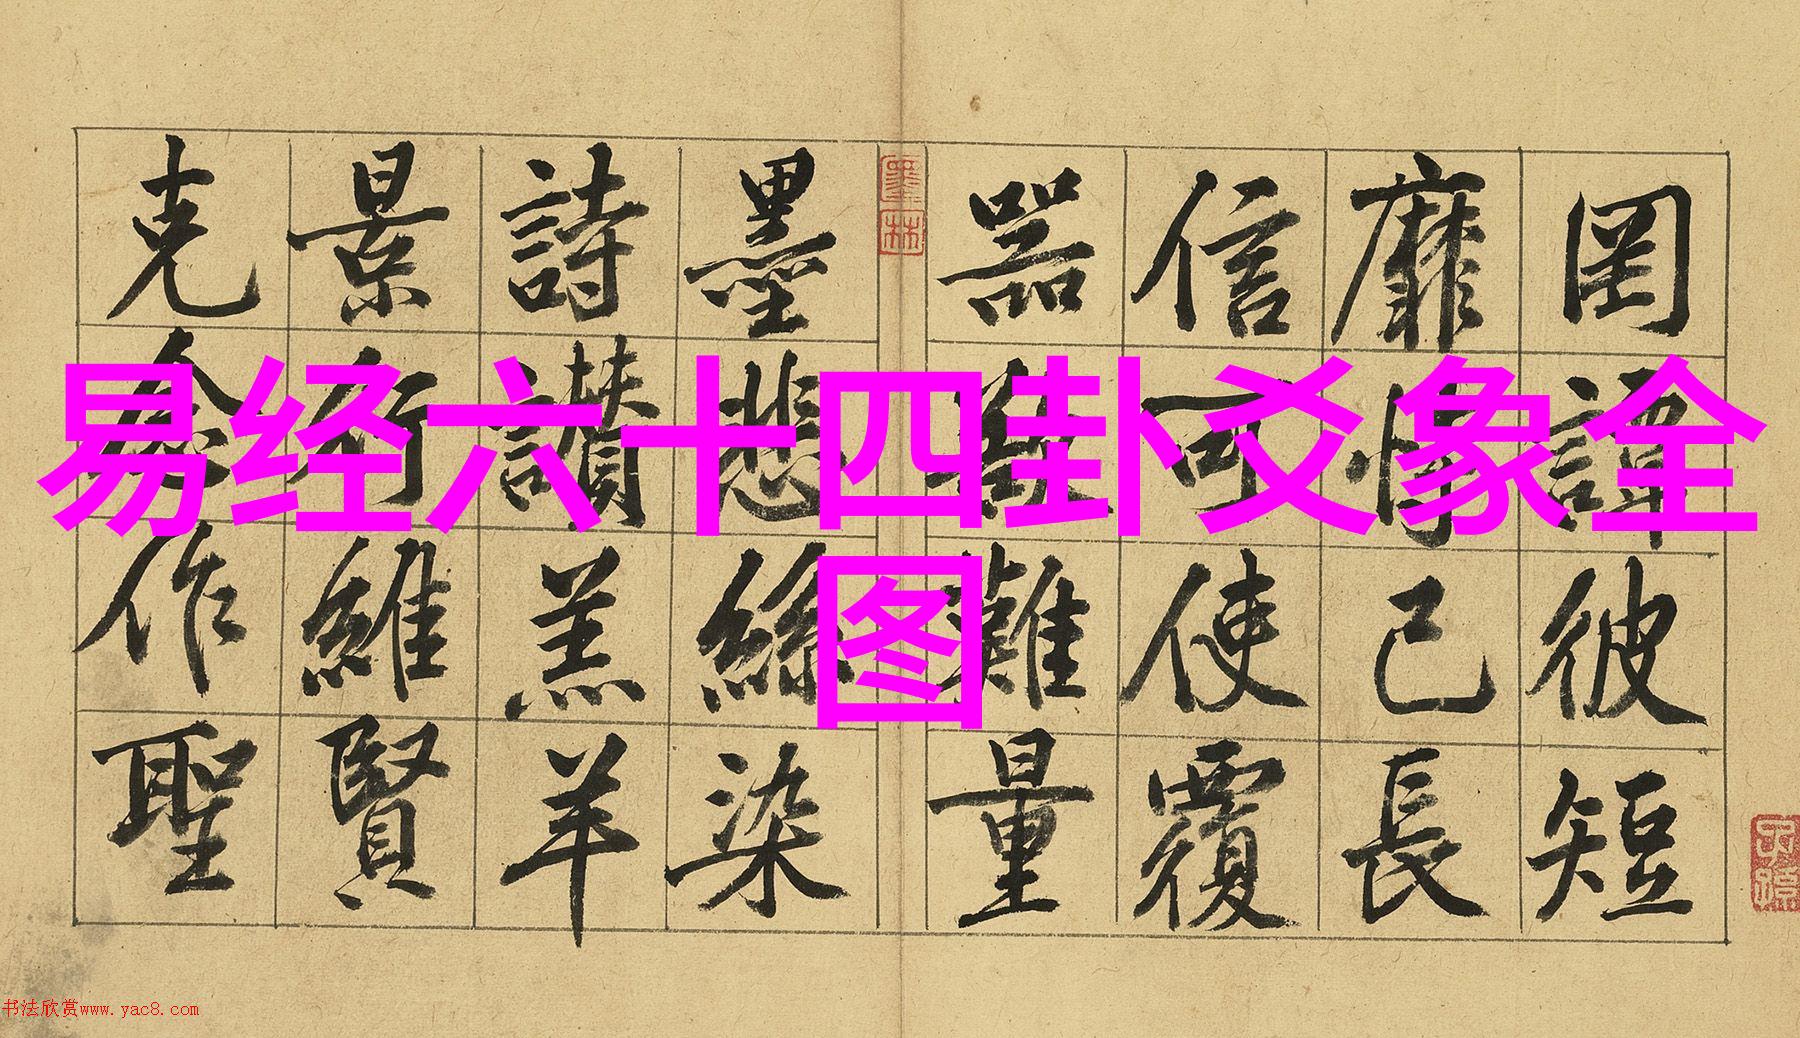 易经六十四卦爻象全
图
罔談彼短
靡恃己長
信可使覆
器欲難量
墨林
墨悲絲染
詩讃羔羊
景行維賢
克念作聖
子孫
书法欣赏www.yac8.com